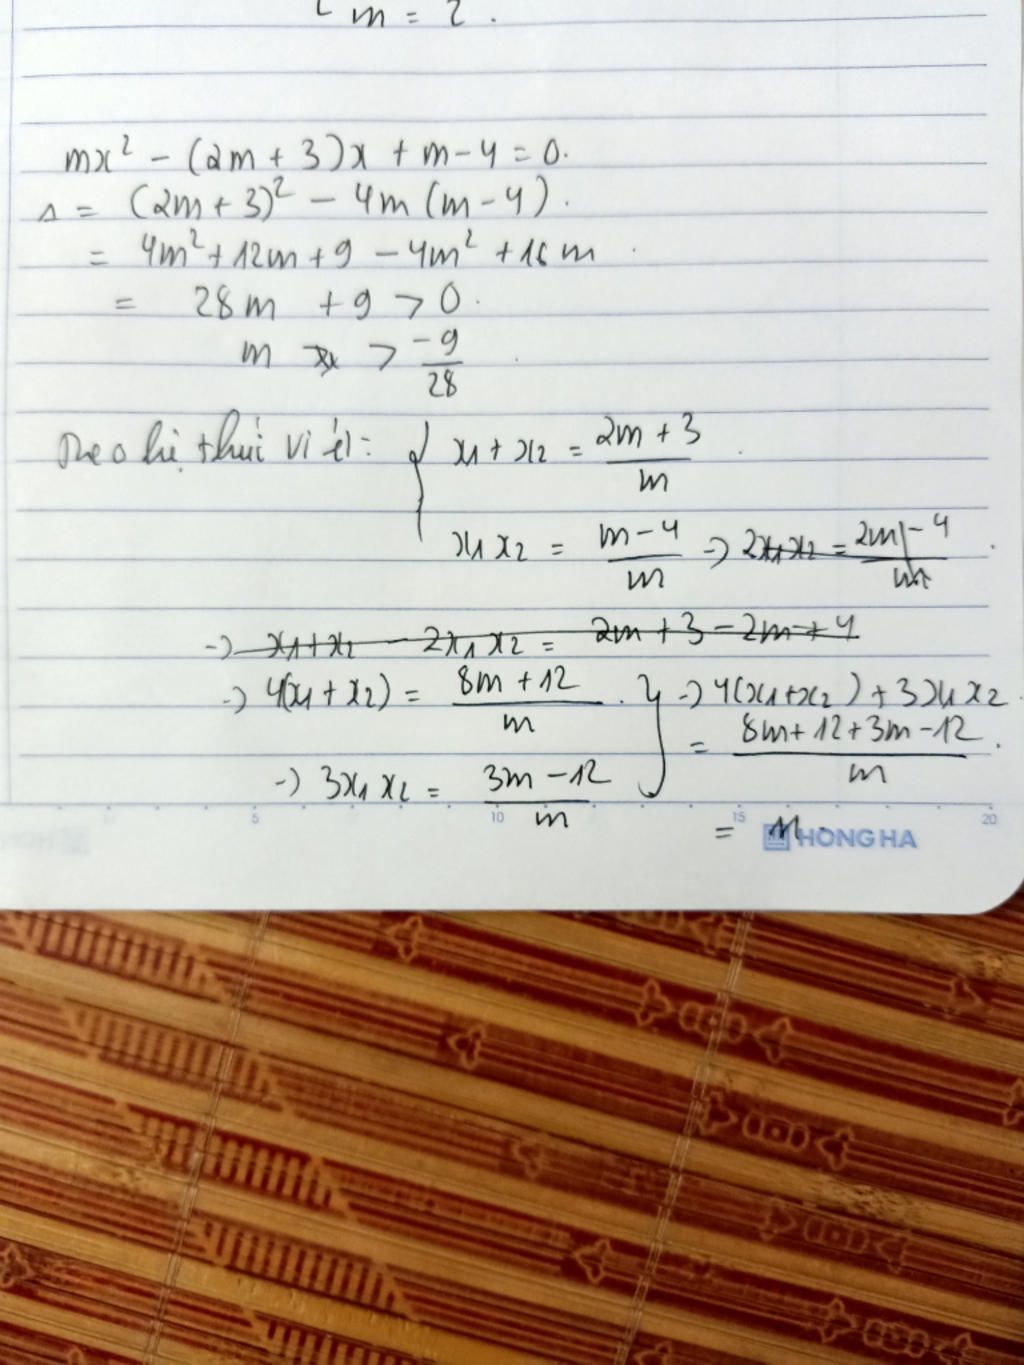 m = 2.
mx² - (2m + 3)x + m - 4 = 0.
Δ = (2m + 3)² - 4m (m - 4).
= 4m² + 12m + 9 - 4m² + 16m.
= 28m + 9 > 0.
m > -9/28
Theo hệ thức Viét: { x₁ + x₂ = (2m + 3)/m
x₁x₂ = (m - 4)/m → 2x₁x₂ = (2m - 4)/m.
→ x₁ + x₂ - 2x₁x₂ = 2m + 3 - 2m + 4
→ 4(x₁ + x₂) = (8m + 12)/m. } → 4(x₁ + x₂) + 3x₁x₂
= (8m + 12 + 3m - 12)/m.
→ 3x₁x₂ = (3m - 12)/m
5 10 15 20
= 11.
HONG HA